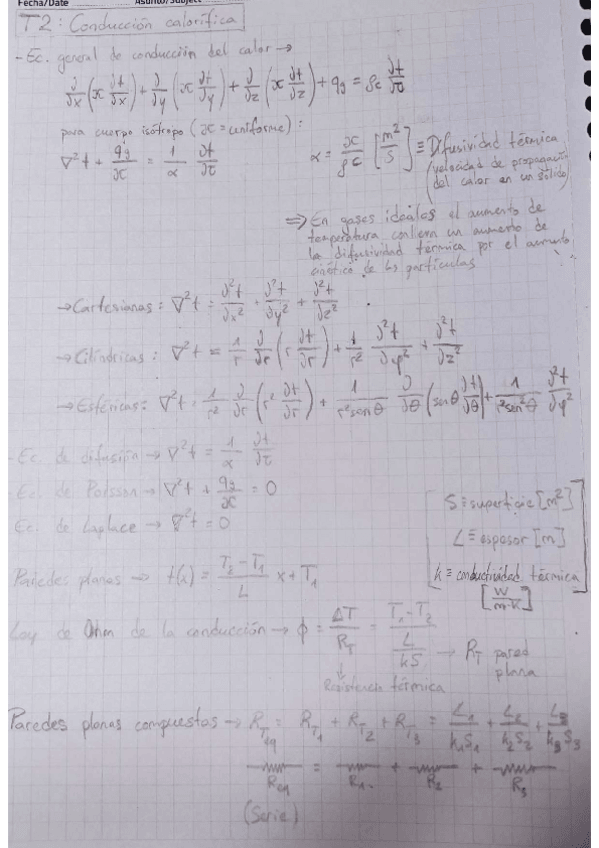 Fecha/Date Asunto/Subject
T2: Conducción calorífica
- Ec. general de conducción del calor →
∂/∂x (ϰ ∂t/∂x) + ∂/∂y (ϰ ∂t/∂y) + ∂/∂z (ϰ ∂t/∂z) + qg = ρc ∂t/∂τ
para cuerpo isótropo (ϰ = uniforme):
∇²t + qg/ϰ = 1/α ∂t/∂τ
α = ϰ/ρc [m²/s] ≡ Difusividad térmica
(velocidad de propagación
del calor en un sólido)
⇒ En gases ideales el aumento de
temperatura conlleva un aumento de
la difusividad térmica por el aumento
cinético de las partículas
→ Cartesianas: ∇²t = ∂²t/∂x² + ∂²t/∂y² + ∂²t/∂z²
→ Cilíndricas: ∇²t = 1/r ∂/∂r (r ∂t/∂r) + 1/r² ∂²t/∂φ² + ∂²t/∂z²
→ Esféricas: ∇²t = 1/r² ∂/∂r (r² ∂t/∂r) + 1/r²senθ ∂/∂θ (senθ ∂t/∂θ) + 1/r²sen²θ ∂²t/∂φ²
- Ec. de difusión → ∇²t = 1/α ∂t/∂τ
- Ec. de Poisson → ∇²t + qg/ϰ = 0
Ec. de Laplace → ∇²t = 0
S ≡ superficie [m²]
L ≡ espesor [m]
k ≡ conductividad térmica
[W/m·k]
Paredes planas → t(x) = T₂-T₁/L x + T₁
Ley de Ohm de la conducción → ϕ = ΔT/R_T = T₁-T₂/(L/kS) → R_T pared
plana
↓
Resistencia térmica
Paredes planas compuestas → R_Teq = R_T1 + R_T2 + R_T3 = L₁/k₁S₁ + L₂/k₂S₂ + L₃/k₃S₃
Req = R₁ + R₂ + R₃
(Serie)